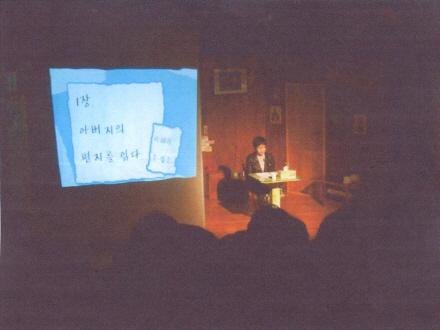 1장
아버지의
편지를 읽다